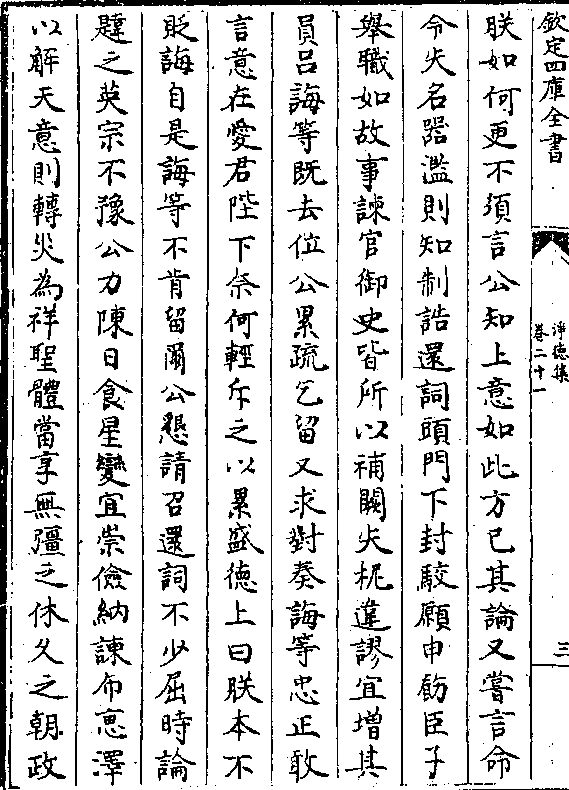 欽定四庫全書
淨德集
卷二十一
三
朕如何更不須言公知上意如此方已其論又嘗言命
令失名器濫則知制誥還詞頭門下封駮願申飭臣子
舉職如故事諫官御史皆所以補闕失柅違謬宜增其
員吕誨等既去位公累疏乞留又求對奏誨等忠正敢
言意在愛君陛下奈何輕斥之以累盛德上曰朕本不
貶誨自是誨等不肯留爾公懇請召還詞不少屈時論
韙之英宗不豫公力陳日食星變宜崇儉納諫布恵澤
以解天意則轉災為祥聖體當享無疆之休久之朝政